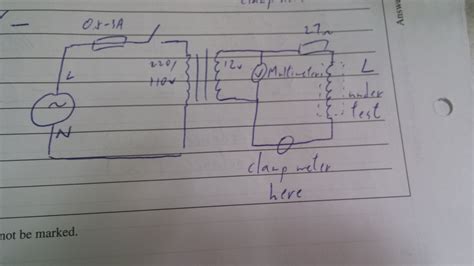 0.5-1A
27Ω
Answe
220/
110v
12v
Multimeter
L
under
test
L
N
clamp meter
here
not be marked.